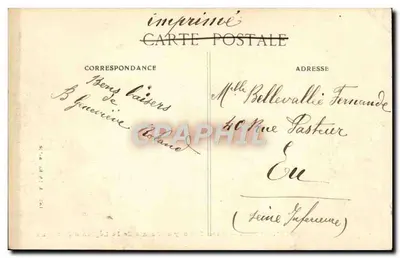 imprimé
CARTE POSTALE
CORRESPONDANCE
Bons baisers
de
B Geneviève Roland
ADRESSE
Mlle Bellevallie Fernande
40 Rue Pasteur
Eu
(Seine Inférieure)
CPAPHIL